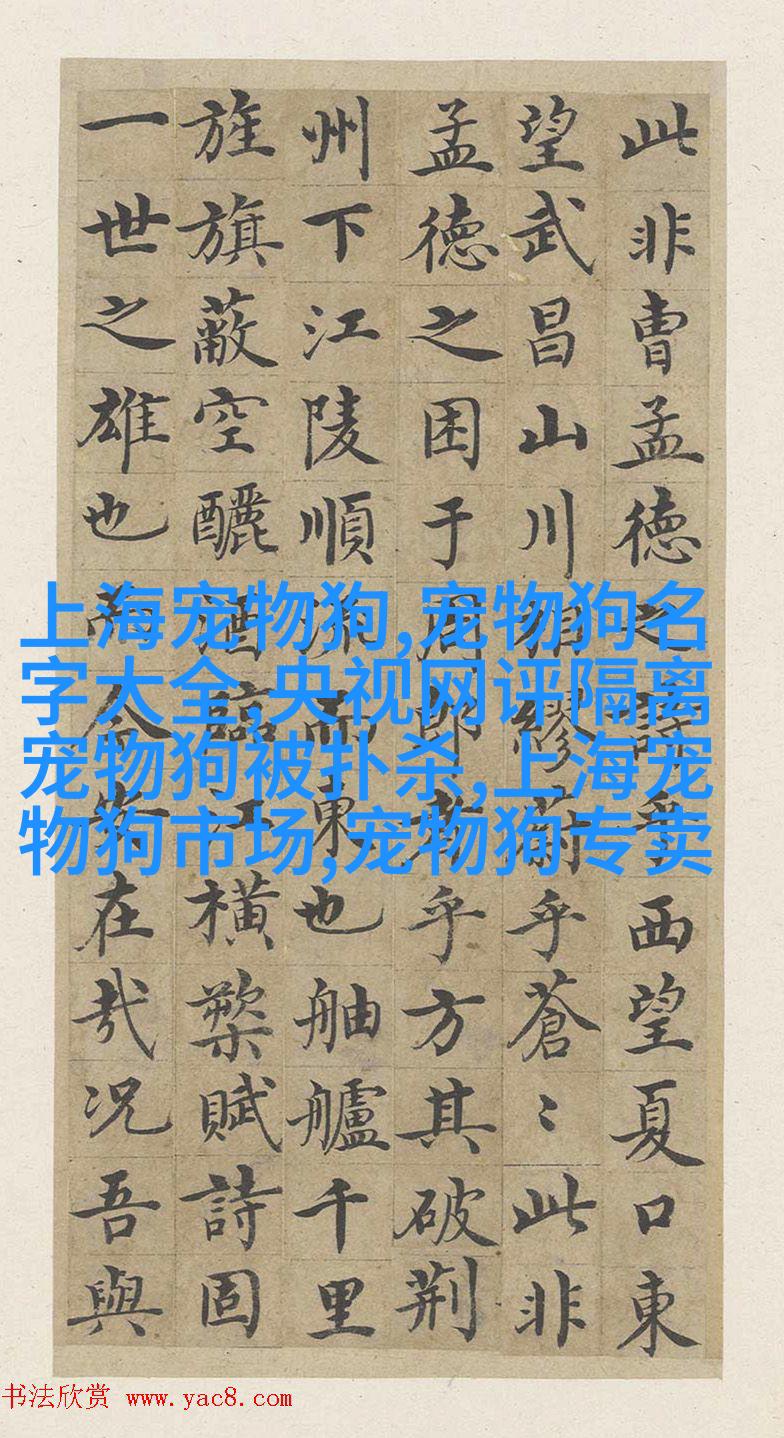 此非曹孟德之詩乎西望夏口東
望武昌山川相繆乎蒼〻此非
孟德之困于周郎者乎方其破荆
州下江陵順流而東也舳艫千里
旌旗蔽空釃酒臨江橫槊賦詩固
一世之雄也而今安在哉况吾與
上海宠物狗,宠物狗名
字大全,央视网评隔离
宠物狗被扑杀,上海宠
物狗市场,宠物狗专卖
书法欣赏 www.yac8.com